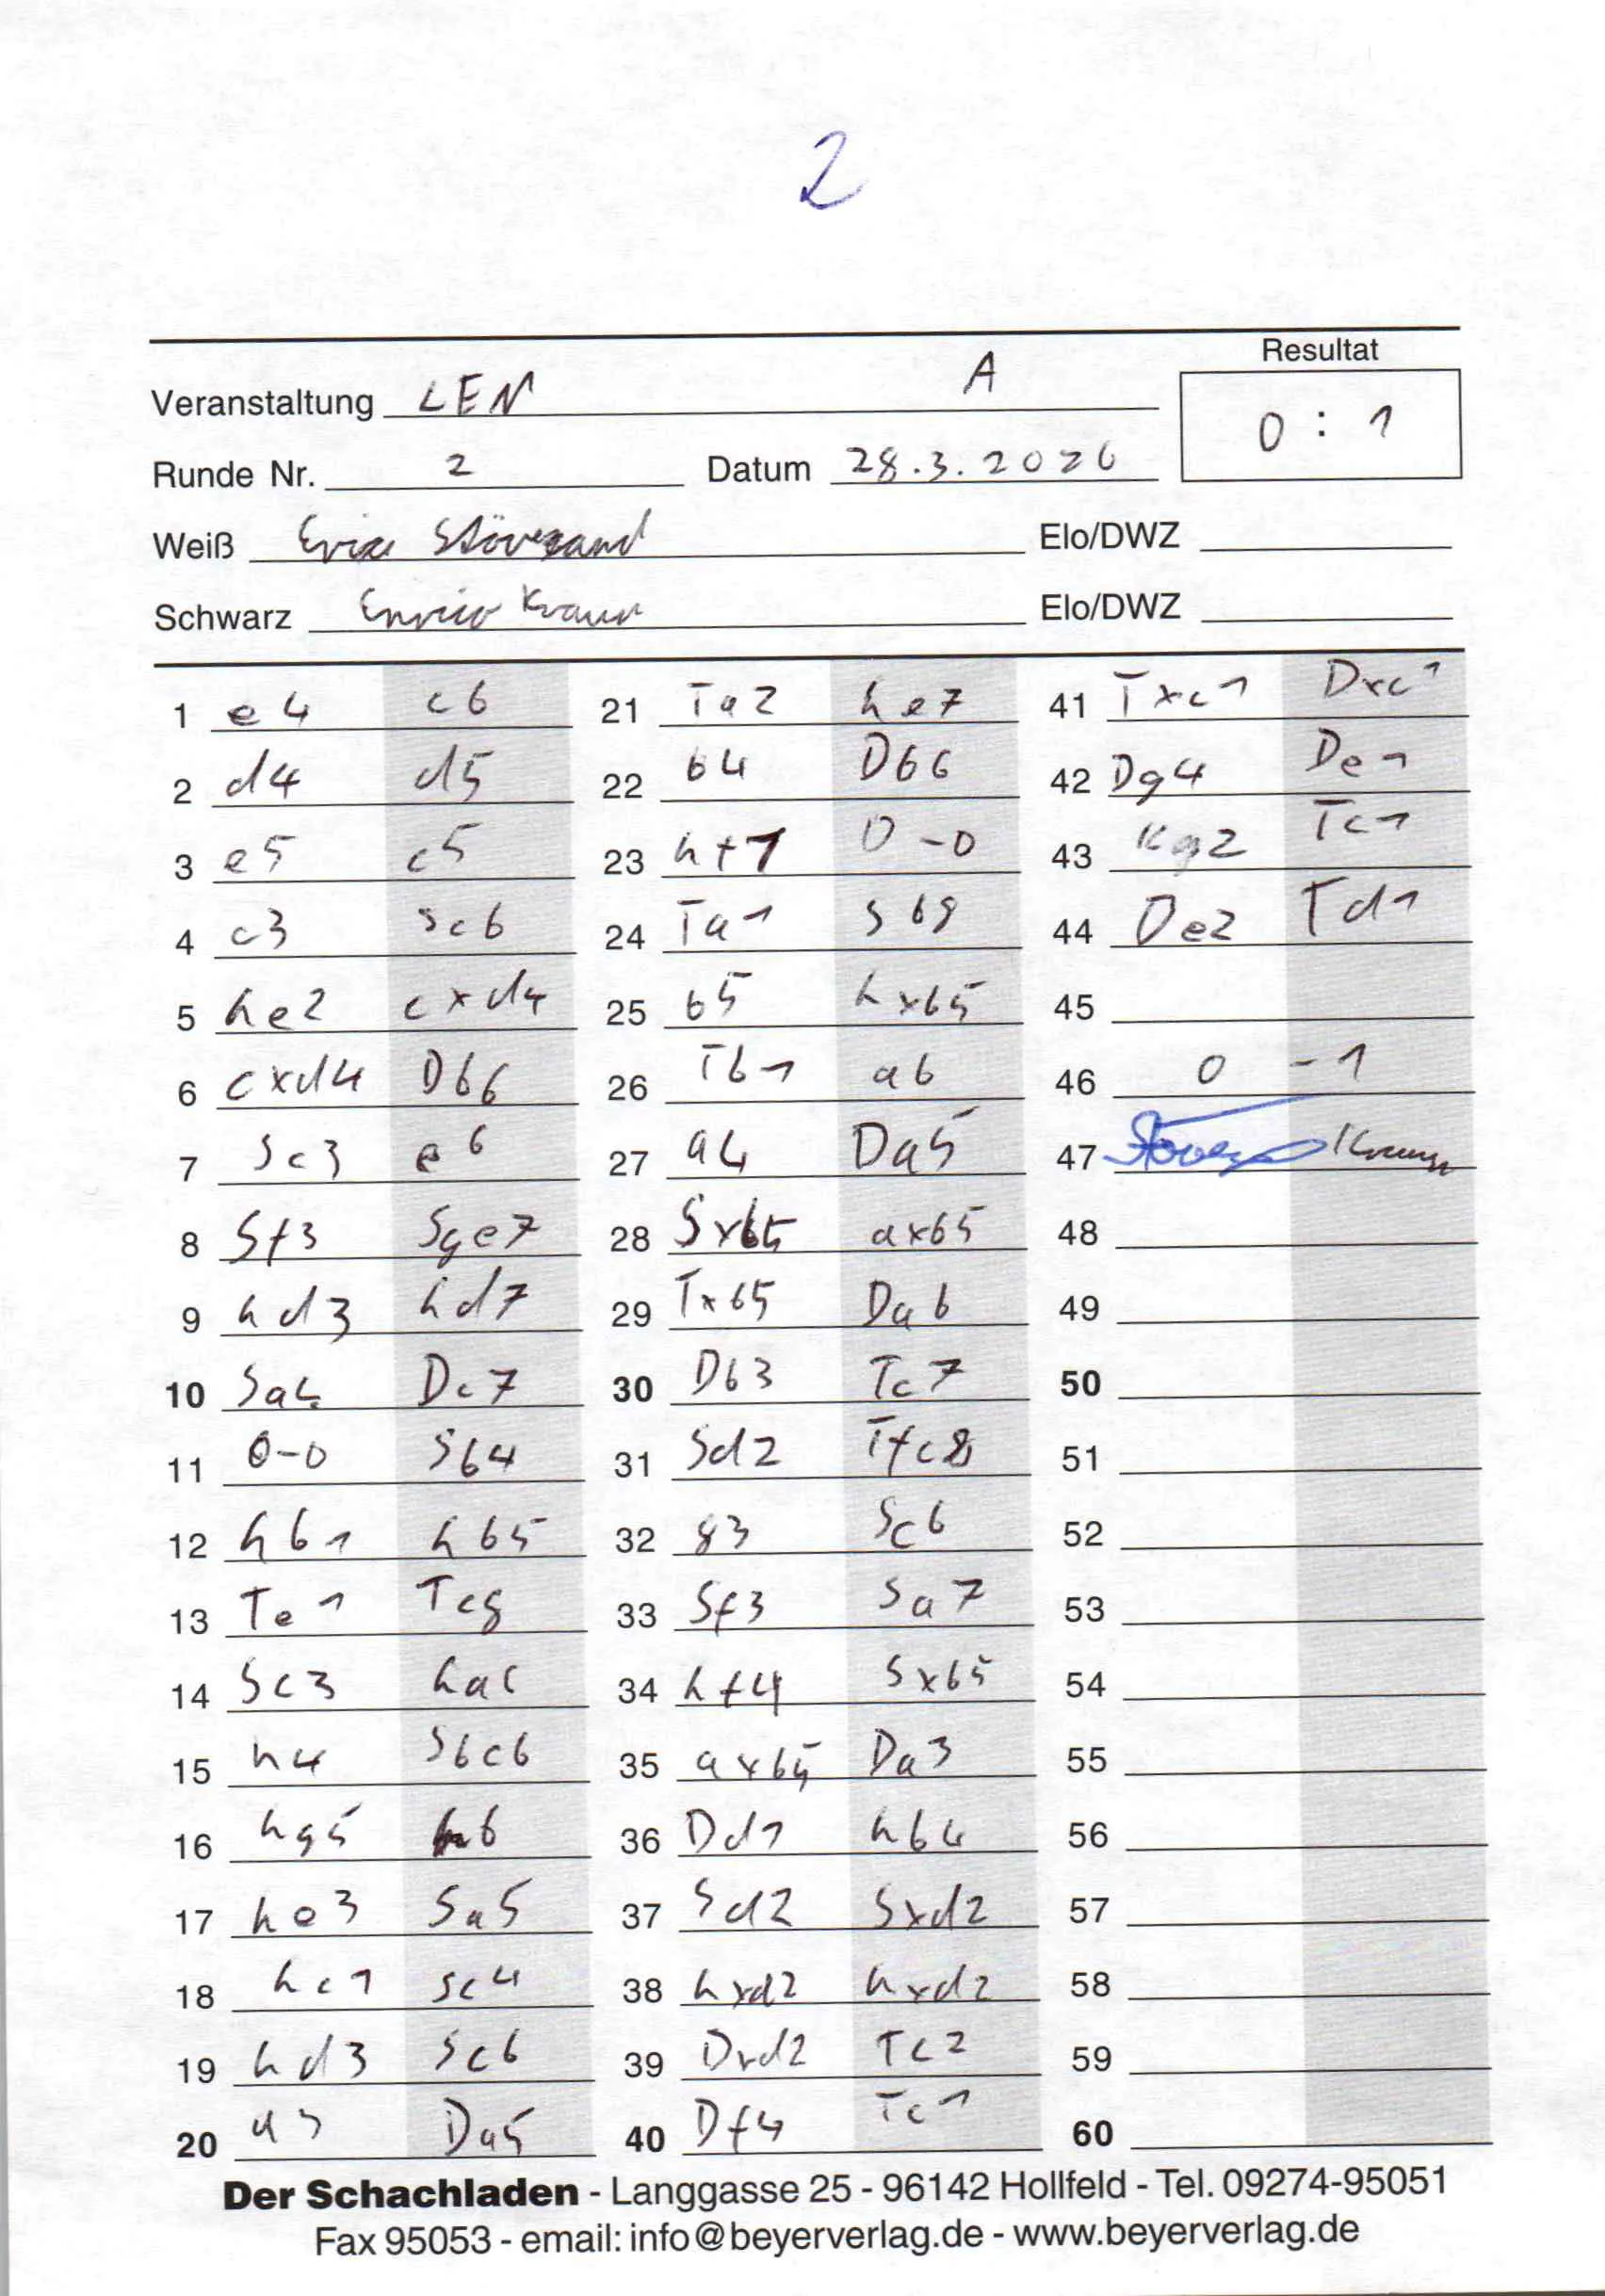 2
Resultat
Veranstaltung LEN A
0 : 1
Runde Nr. 2 Datum 28.3.2026
Weiß Erik Stöversand Elo/DWZ
Schwarz Enrico Kraus Elo/DWZ
1 e4 c6 21 Ta2 he7 41 Txc1 Dxc1
2 d4 d5 22 b4 Db6 42 Dg4 De1
3 e5 c5 23 hf1 0-0 43 Kg2 Tc1
4 c3 Sc6 24 Ta1 Sb8 44 De2 Td1
5 he2 cxd4 25 b5 hxb5 45
6 cxd4 Db6 26 Tb1 a6 46 0 - 1
7 Sc3 e6 27 a4 Da5 47
8 Sf3 Sge7 28 Sxb5 axb5 48
9 hd3 hd7 29 Txb5 Da6 49
10 Sa4 Dc7 30 Db3 Tc7 50
11 0-0 Sb4 31 Sd2 Tfc8 51
12 hb1 hb5 32 g3 Sc6 52
13 Te1 Tc8 33 Sf3 Sa7 53
14 Sc3 ha6 34 hf4 Sxb5 54
15 h4 Sbc6 35 axb5 Da3 55
16 hg5 h6 36 Dd1 hb4 56
17 he3 Sa5 37 Sd2 Sxd2 57
18 hc1 Sc4 38 hxd2 hxd2 58
19 hd3 Sc6 39 Dxd2 Tc2 59
20 a3 Da5 40 Df4 Tc1 60
Der Schachladen - Langgasse 25 - 96142 Hollfeld - Tel. 09274-95051
Fax 95053 - email: info@beyerverlag.de - www.beyerverlag.de